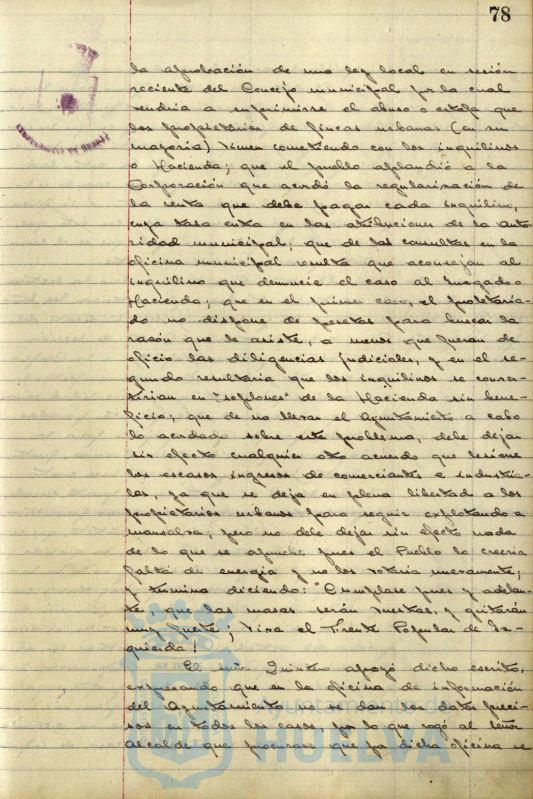 78
la aprobación de una ley local en sesión
reciente del Concejo municipal por la cual
vendría a suprimirse el abuso o estafa que
los propietarios de fincas urbanas (en su
mayoría) vienen cometiendo con los inquilinos
o Hacienda; que el pueblo aplaudió a la
Corporación que acordó la regularización de
la renta que debe pagar cada inquilino,
cuya tasa entra en las atribuciones de la auto-
ridad municipal; que de las consultas en la
oficina municipal resulta que aconsejan al
inquilino que denuncie el caso al Juzgado o
Hacienda; que en el primer caso, el proletaria-
do no dispone de pesetas para buscar la
razón que le asiste, a menos que fueran de
oficio las diligencias judiciales, y en el se-
gundo resultaría que los inquilinos se conver-
tirían en "soplones" de la Hacienda sin bene-
ficio; que de no llevar el Ayuntamiento a cabo
lo acordado sobre este problema, debe dejar
sin efecto cualquier otro acuerdo que lesione
los escasos ingresos de comerciantes e industria-
les, ya que se deja en plena libertad a los
propietarios urbanos para seguir explotando a
mansalva; pero no debe dejar sin efecto nada
de lo que se apruebe pues el Pueblo lo creería
falta de energía y no los votaría nuevamente;
y termina diciendo: "Cúmplase pues y adelan-
te, que las masas serán vuestras, y gritarán
muy fuerte, Viva el Frente Popular de Iz-
quierda!
El señor Quintero apoyó dicho escrito,
expresando que en la oficina de información
del Ayuntamiento no se dan los datos preci-
sos en todos los casos por lo que rogó al señor
alcalde que procurara que por dicha oficina se
AYUNTAMIENTO DE HUELVA
Ayuntamiento de
HUELVA